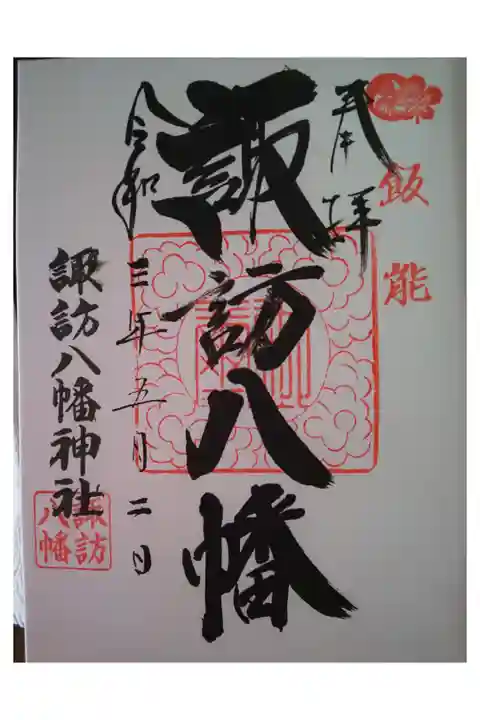 飯能
奉拝
諏訪八幡
令和三年五月二日
諏訪八幡神社
諏訪
八幡